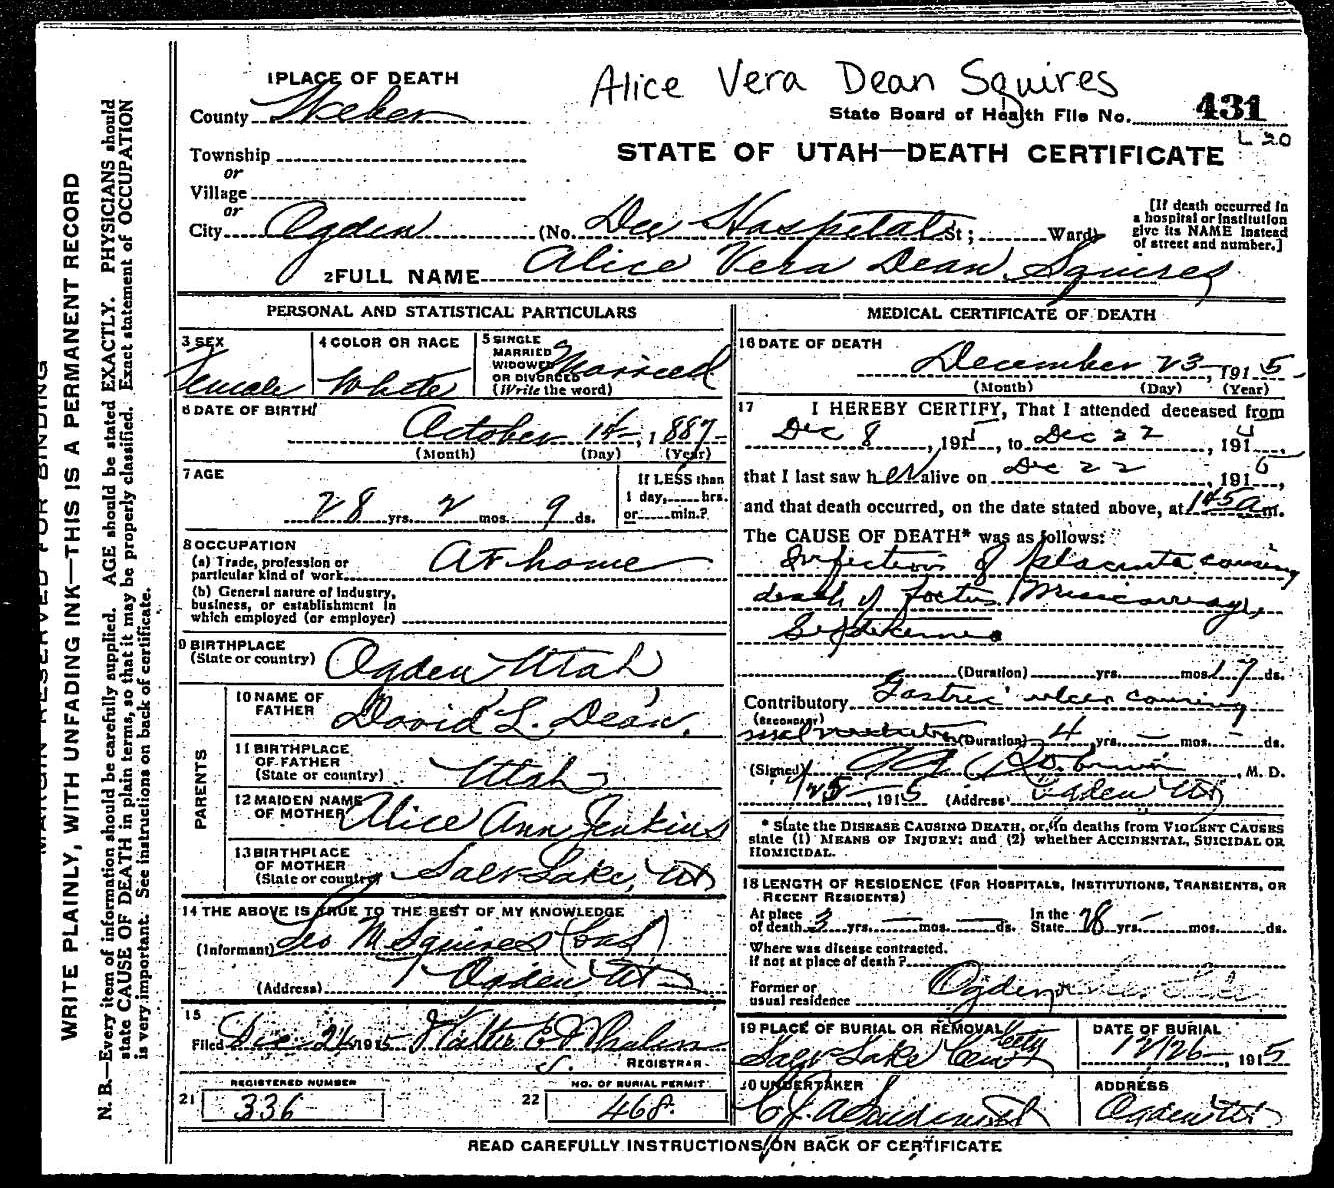 Alice Vera Dean Squires
1 PLACE OF DEATH
County Weber
State Board of Health File No. 431
L 20
Township
or
Village
or
City Ogden (No. Dee Hospital St; Ward)
STATE OF UTAH—DEATH CERTIFICATE
[If death occurred in a hospital or institution give its NAME instead of street and number.]
2 FULL NAME Alice Vera Dean Squires
PERSONAL AND STATISTICAL PARTICULARS
3 SEX Female
4 COLOR OR RACE White
5 SINGLE MARRIED WIDOWED OR DIVORCED (Write the word) Married
6 DATE OF BIRTH October 14, 1887
(Month) (Day) (Year)
7 AGE 28 yrs. 2 mos. 9 ds.
If LESS than 1 day, hrs. or min.?
8 OCCUPATION
(a) Trade, profession or particular kind of work At home
(b) General nature of Industry, business, or establishment in which employed (or employer)
9 BIRTHPLACE (State or country) Ogden Utah
PARENTS
10 NAME OF FATHER David L. Dean.
11 BIRTHPLACE OF FATHER (State or country) Utah
12 MAIDEN NAME OF MOTHER Alice Ann Jenkins
13 BIRTHPLACE OF MOTHER (State or country) Salt Lake, Ut
14 THE ABOVE IS TRUE TO THE BEST OF MY KNOWLEDGE
(Informant) Leo M Squires
(Address) Ogden Ut
15
Filed Dec 24 1915 Walter E Whalen
REGISTRAR
REGISTERED NUMBER
21 336
NO. OF BURIAL PERMIT
22 468
MEDICAL CERTIFICATE OF DEATH
16 DATE OF DEATH
December 23, 1915
(Month) (Day) (Year)
17 I HEREBY CERTIFY, That I attended deceased from
Dec 8, 1915, to Dec 22 191
that I last saw her alive on Dec 22, 1915,
and that death occurred, on the date stated above, at 145 a m.
The CAUSE OF DEATH* was as follows:
Infection of Placenta causing
death of foetus, Miscarriage,
Septicemia
(Duration) yrs. mos. 17 ds.
Contributory Gastric ulcer causing
(SECONDARY)
(Duration) 4 yrs. — mos. — ds.
(Signed) M. D.
1915 (Address) Ogden Ut
* State the DISEASE CAUSING DEATH, or, in deaths from VIOLENT CAUSES state (1) MEANS OF INJURY; and (2) whether ACCIDENTAL, SUICIDAL OR HOMICIDAL.
18 LENGTH OF RESIDENCE (FOR HOSPITALS, INSTITUTIONS, TRANSIENTS, OR RECENT RESIDENTS)
At place of death 3 yrs. — mos. — ds. In the State 28 yrs. — mos. ds.
Where was disease contracted.
if not at place of death?
Former or usual residence Ogden
19 PLACE OF BURIAL OR REMOVAL
Salt Lake City Cem
DATE OF BURIAL
12/26 1915
20 UNDERTAKER
ADDRESS
Ogden Ut
READ CAREFULLY INSTRUCTIONS ON BACK OF CERTIFICATE
MARGIN RESERVED FOR BINDING
WRITE PLAINLY, WITH UNFADING INK—THIS IS A PERMANENT RECORD
N. B.—Every item of information should be carefully supplied. AGE should be stated EXACTLY. PHYSICIANS should
state CAUSE OF DEATH in plain terms, so that it may be properly classified. Exact statement of OCCUPATION
is very important. See instructions on back of certificate.